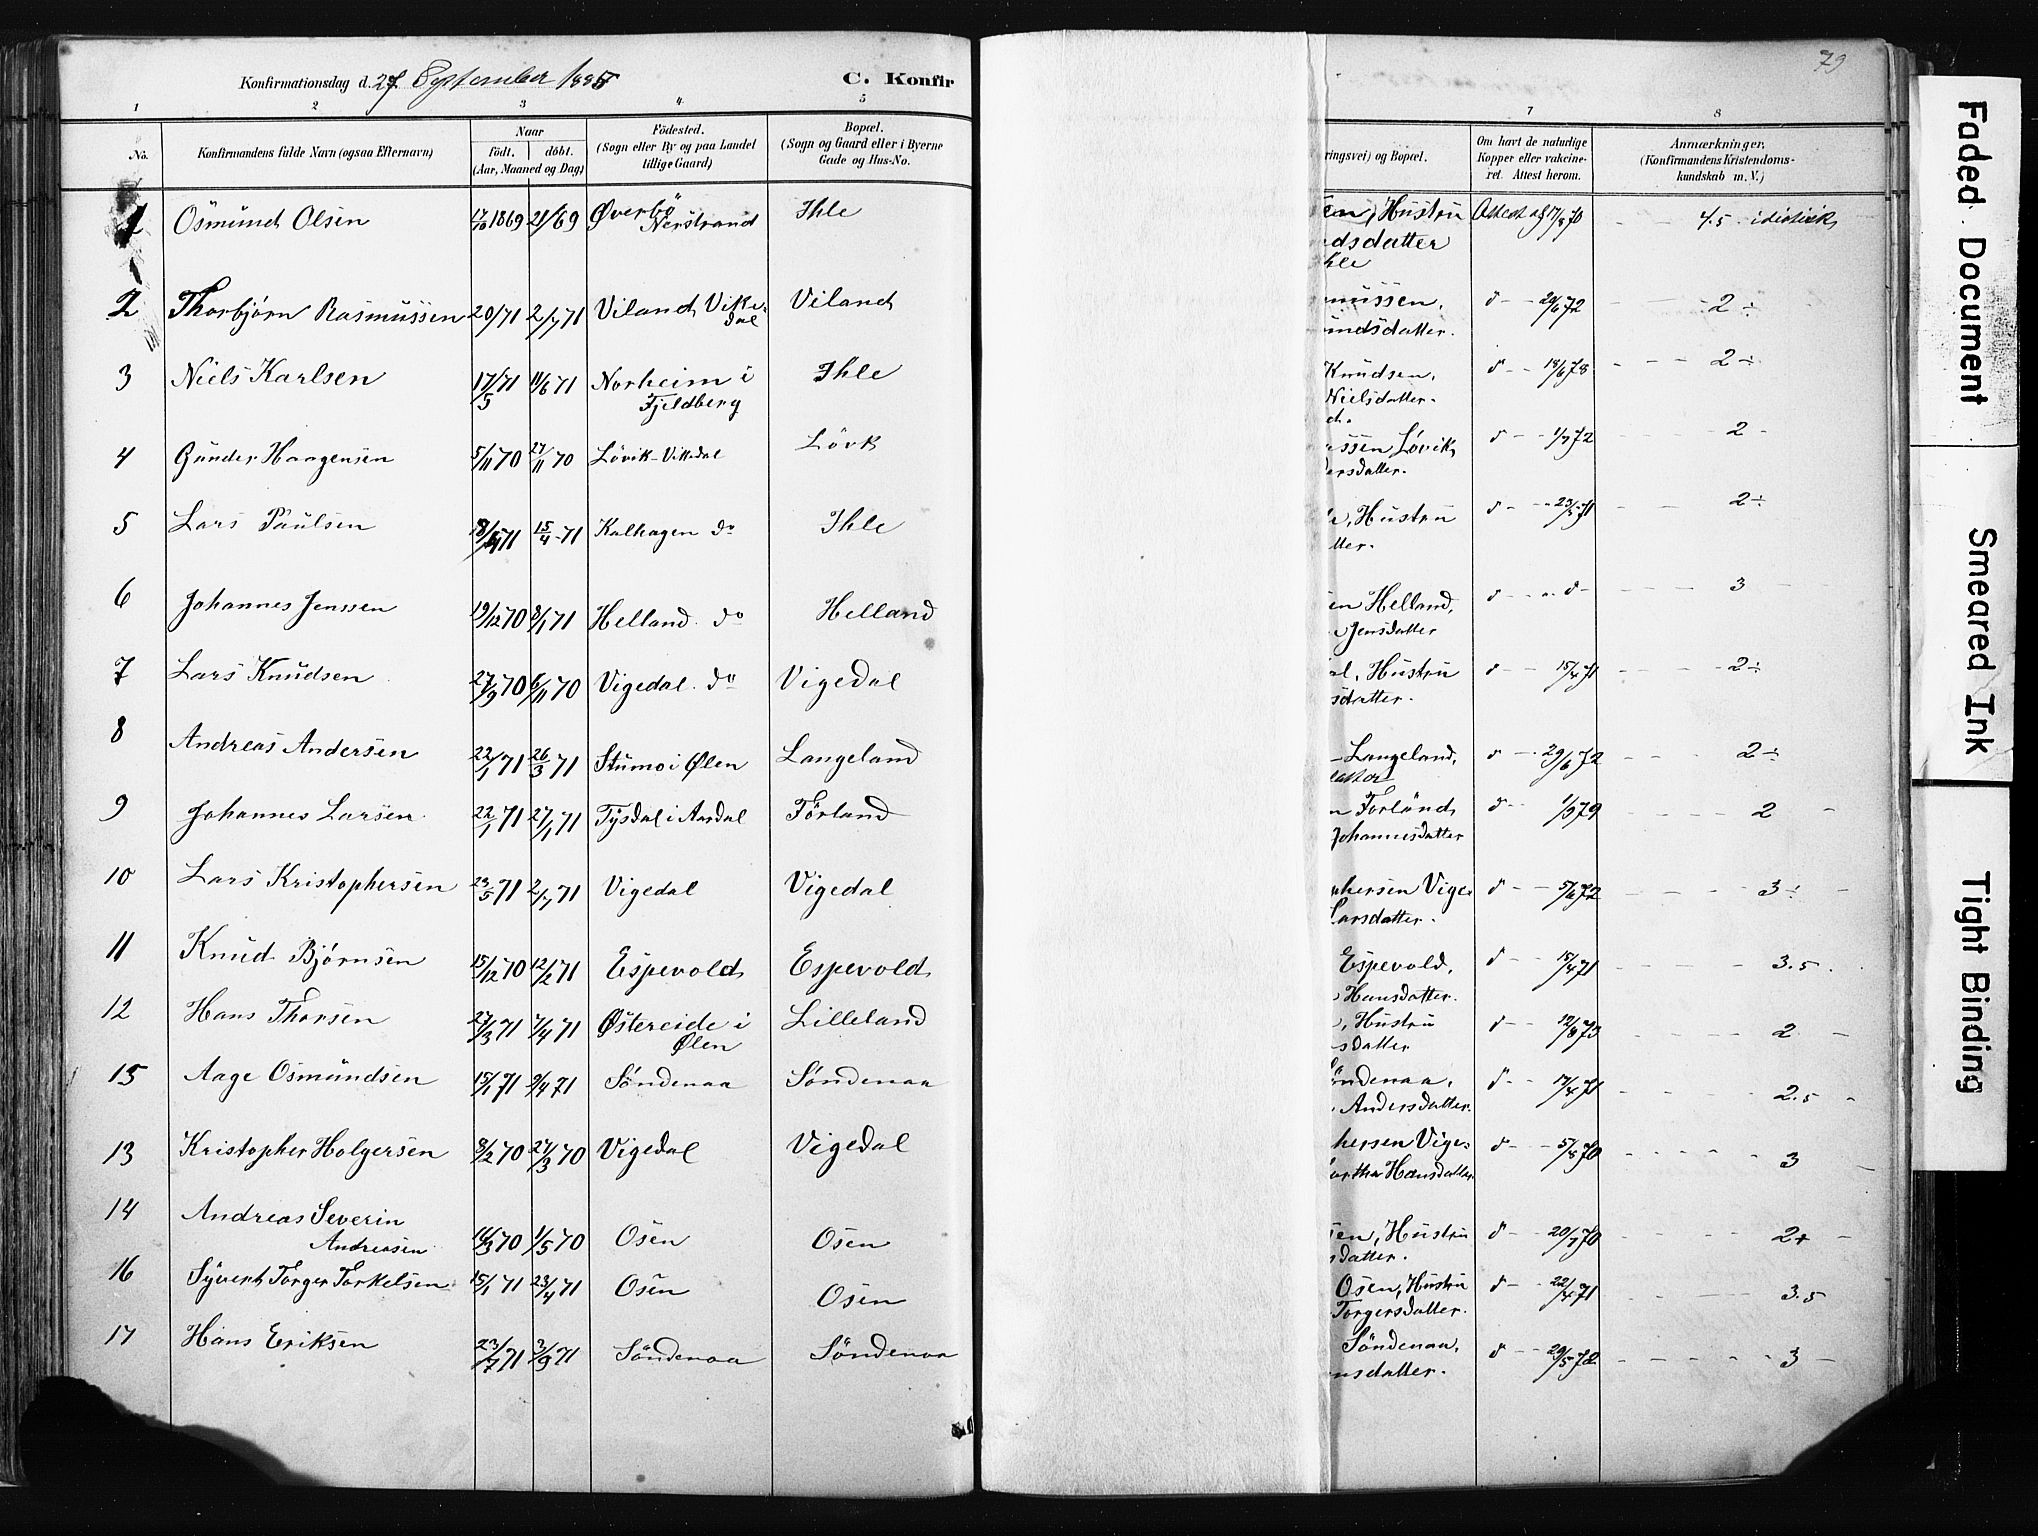 79
Konfirmationsdag d. 27 September 1885
C. Konfir
1 2 3 4 5 7 8
No.
Konfirmandens fulde Navn (ogsaa Efternavn)
Naar
födt. döbt.
(Aar, Maaned og Dag)
Födested.
(Sogn eller By og paa Landet
tillige Gaard)
Bopæl.
(Sogn og Gaard eller i Byerne
Gade og Hus-No.
ringsvei) og Bopæl.
Om havt de naturlige
Kopper eller vakcine-
ret. Attest herom.
Anmærkninger.
(Konfirmandens Kristendoms-
kundskab m. V.)
1 Osmund Olsen 17/10 1869 21/ 69 Øverbö Nerstrand Ihle
Hustru
dsdatter
hle
Attest af 17/8 70 4.5 idiotisk
2 Thorbjørn Rasmussen 20/71 2/7 71 Viland Vike-
dal
Viland
mussen,
undsdatter.
d - - 29/6 72 - - - 2 ÷
3 Niels Karlsen 17/5 71 11/6 71 Norheim i
Fjeldberg
Ihle
Knudsen,
Nielsdatter.
d - - 18/6 78 - - - 2 ÷
4 Gunder Haagensen 5/11 70 27/11 70 Lövik-Vikedal Lövk
ssen Lövik,
dersdatter.
d - - 1/7 72 - - - 2 -
5 Lars Paulsen 15/4 - 71 Kalhagen do Ihle
Hustru
tter.
d - - 23/5 71 - - - 2 ÷
6 Johannes Jenssen 19/12 70 8/1 71 Helland do Helland
en Helland,
Jensdatter
d - - d - - - - 3
7 Lars Knudsen 27/9 70 6/11 70 Vigedal do Vigedal
al, Hustru
sdatter.
d - - 15/4 71 - - - 2 ÷
8 Andreas Andersen 22/1 71 26/3 71 Stumo i Ølen Langeland
Langeland,
d - - 29/6 72 - - - 2 ÷
9 Johannes Larsen 22/1 71 27/1 71 Tysdal i Aardal Förland
n Forland,
Johannesdatter
d - - 1/9 79 - - - 2 -
10 Lars Kristophersen 23/5 71 2/7 71 Vigedal Vigedal
phersen Vige-
Larsdatter.
d - - 5/6 72 - - - - 3 ÷ -
11 Knud Bjørnsen 15/12 70 12/2 71 Espevold Espevold
Espevold,
Hansdatter.
d - - 15/4 71 - - - - 3.5.
12 Hans Thorsen 27/3 71 7/4 71 Østereide i
Ølen
Lilleland
Hustru
sdatter
d - - 12/8 73 - - - - 2 -
15 Aage Osmundsen 15/1 71 9/4 71 Söndenaa Söndenaa
öndenaa,
Andersdatter.
d - - 17/4 71 - - - - 2.5 -
13 Kristopher Holgersen 8/2 70 27/3 70 Vigedal Vigedal
hersen Vige-
artha Hansdatter
d - - 5/8 70 - - - - 3 -
14 Andreas Severin
Andreasen
1/5 70 Osen Osen
en, Hustru
sdatter.
d - - 20/7 70 - - - 2+ -
16 Syvert Torger Torkelsen 15/1 71 23/4 71 Osen Osen
Osen, Hustru
Torgersdatter.
d - - 22/4 71 - - - 3.5
17 Hans Eriksen 23/7 71 3/9 71 Söndenaa Söndenaa
Söndenaa,
nsdatter.
d - - 29/5 72 - - - - 3 -
Faded Document
Smeared Ink
Tight Binding